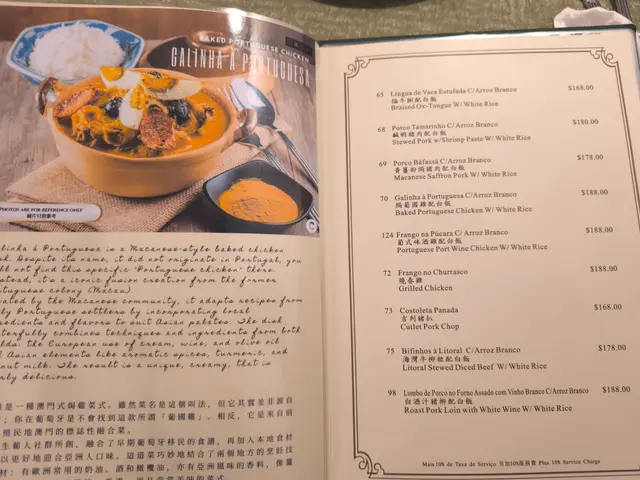 BAKED PORTUGUESE CHICKEN
GALINHA À PORTUGUESA
PHOTOS ARE FOR REFERENCE ONLY
圖片只供參考
à Portuguesa is a Macanese-style baked chicken
Despite its name, it did not originate in Portugal, you
not find this specific 'Portuguese chicken' there.
it's a iconic fusion creation from the former
colony (Macau).
by the Macanese community, it adapts recipes from
Portuguese settlers by incorporating local
and flavors to suit Asian palates. The dish
combines techniques and ingredients from both
the European use of cream, wine, and olive oil
Asian elements like aromatic spices, turmeric, and
milk. The result is a unique, creamy, that is
delicious.
是一種澳門式焗雞菜式。雖然菜名是這個叫法，但它其實並非源自
；你在葡萄牙是不會找到這款所謂「葡國雞」。相反，它是來自前
殖民地澳門的標誌性融合菜。
生葡人社群所創，融合了早期葡萄牙移民的食譜，再加入本地食材
以更好地迎合亞洲人口味。這道菜巧妙地結合了兩個地方的烹飪技
材：有歐洲常用的奶油、酒和橄欖油，亦有亞洲風味的香料，
65 Lingua de Vaca Estufada C/Arroz Branco $168.00
燴牛脷配白飯
Braised Ox-Tongue W/ White Rice
68 Porco Tamarinho C/ Arroz Branco $180.00
鹹蝦豬肉配白飯
Stewed Pork w/Shrimp Paste W/ White Rice
69 Porco Báfassá C/ Arroz Branco $178.00
黃薑粉焗豬肉配白飯
Macanese Saffron Pork W/ White Rice
70 Galinha à Portuguesa C/ Arroz Branco $188.00
焗葡國雞配白飯
Baked Portuguese Chicken W/ White Rice
124 Frango na Púcara C/ Arroz Branco $188.00
葡式砵酒雞配白飯
Portuguese Port Wine Chicken W/ White Rice
72 Frango no Churrasco $188.00
燒春雞
Grilled Chicken
73 Costoleta Panada $168.00
吉列豬扒
Cutlet Pork Chop
75 Bifinhos à Litoral C/ Arroz Branco $178.00
海灣牛柳粒配白飯
Litoral Stewed Diced Beef W/ White Rice
98 Lombo de Porco no Forno Assado com Vinho Branco C/Arroz Branco $188.00
白酒汁豬柳配白飯
Roast Pork Loin with White Wine W/ White Rice
Mais 10% de Taxa de Serviço 另加10%服務費 Plus 10% Service Charge